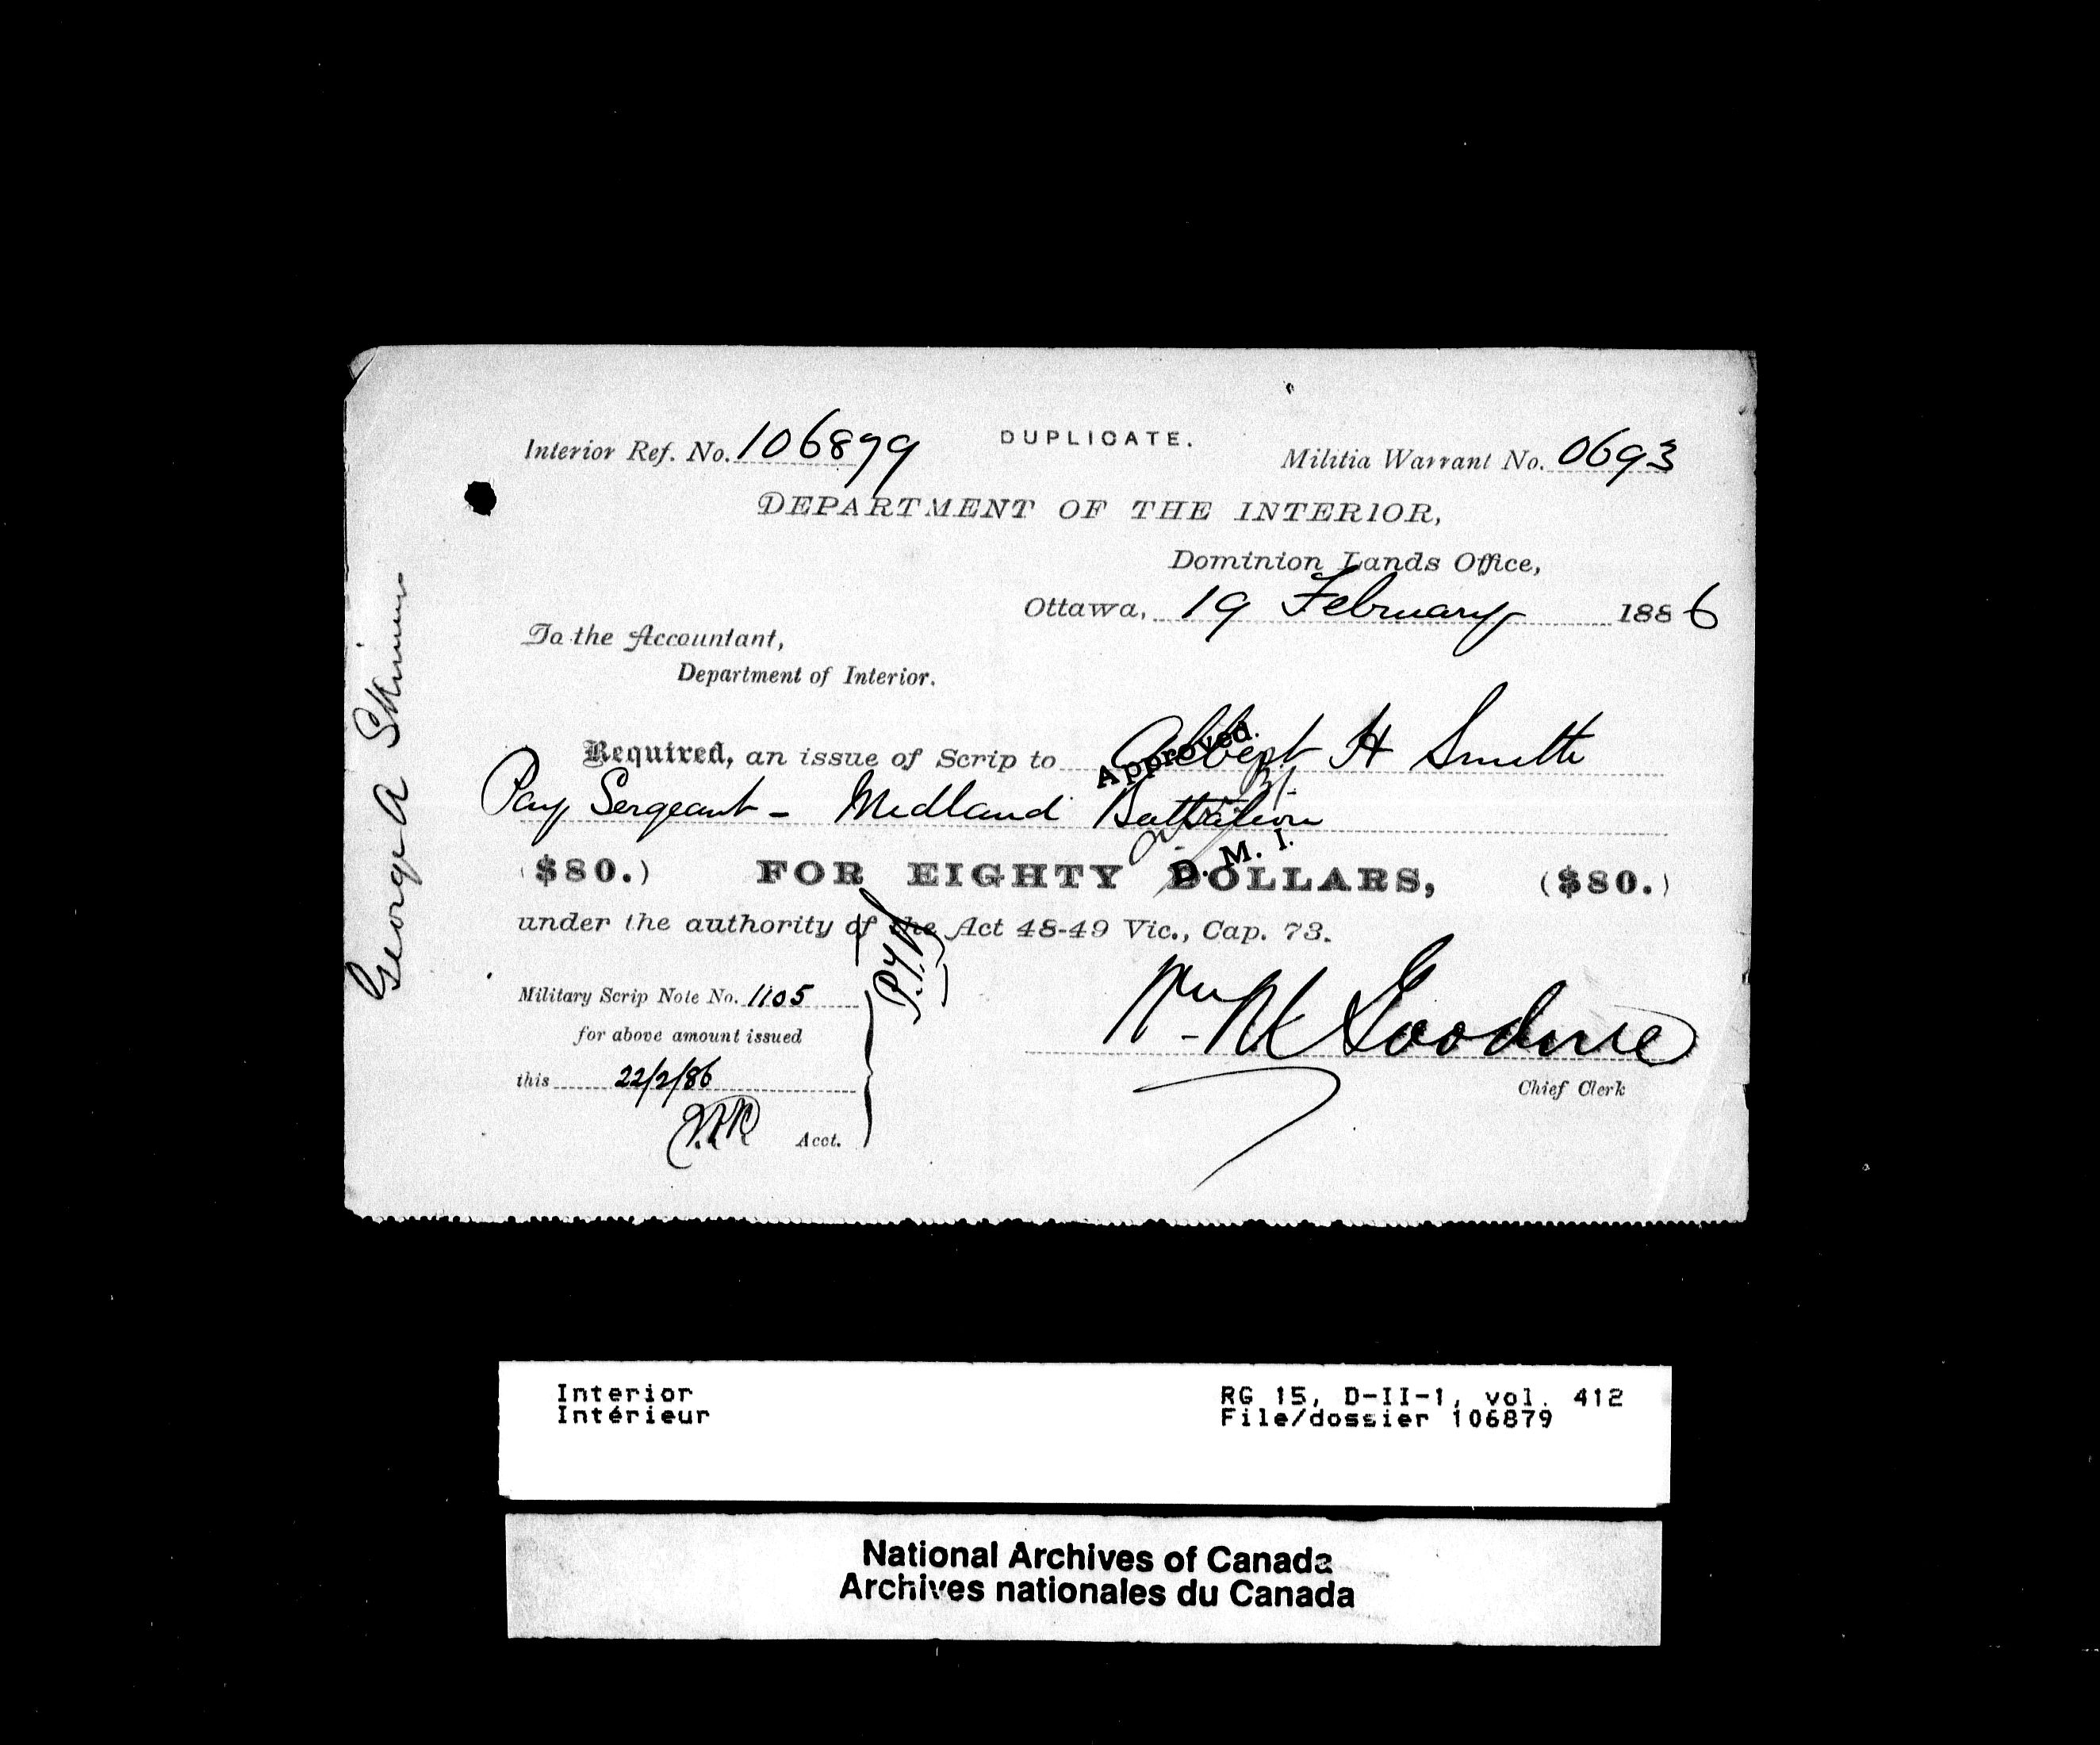 Interior Ref. No. 106879
DUPLICATE.
Militia Warrant No. 0693
DEPARTMENT OF THE INTERIOR,
Dominion Lands Office,
Ottawa, 19 February 1886
To the Accountant,
Department of Interior.
Required, an issue of Scrip to Albert H Smith
Pay Sergeant - Midland Battalion
Approved.
D. M. I.
($80.) FOR EIGHTY DOLLARS, ($80.)
under the authority of the Act 48-49 Vic., Cap. 73.
Military Scrip Note No. 1105
for above amount issued
this 22/2/86
Acct.
Chief Clerk
George A Skinner
Interior
Intérieur
RG 15, D-II-1, vol. 412
File/dossier 106879
National Archives of Canada
Archives nationales du Canada